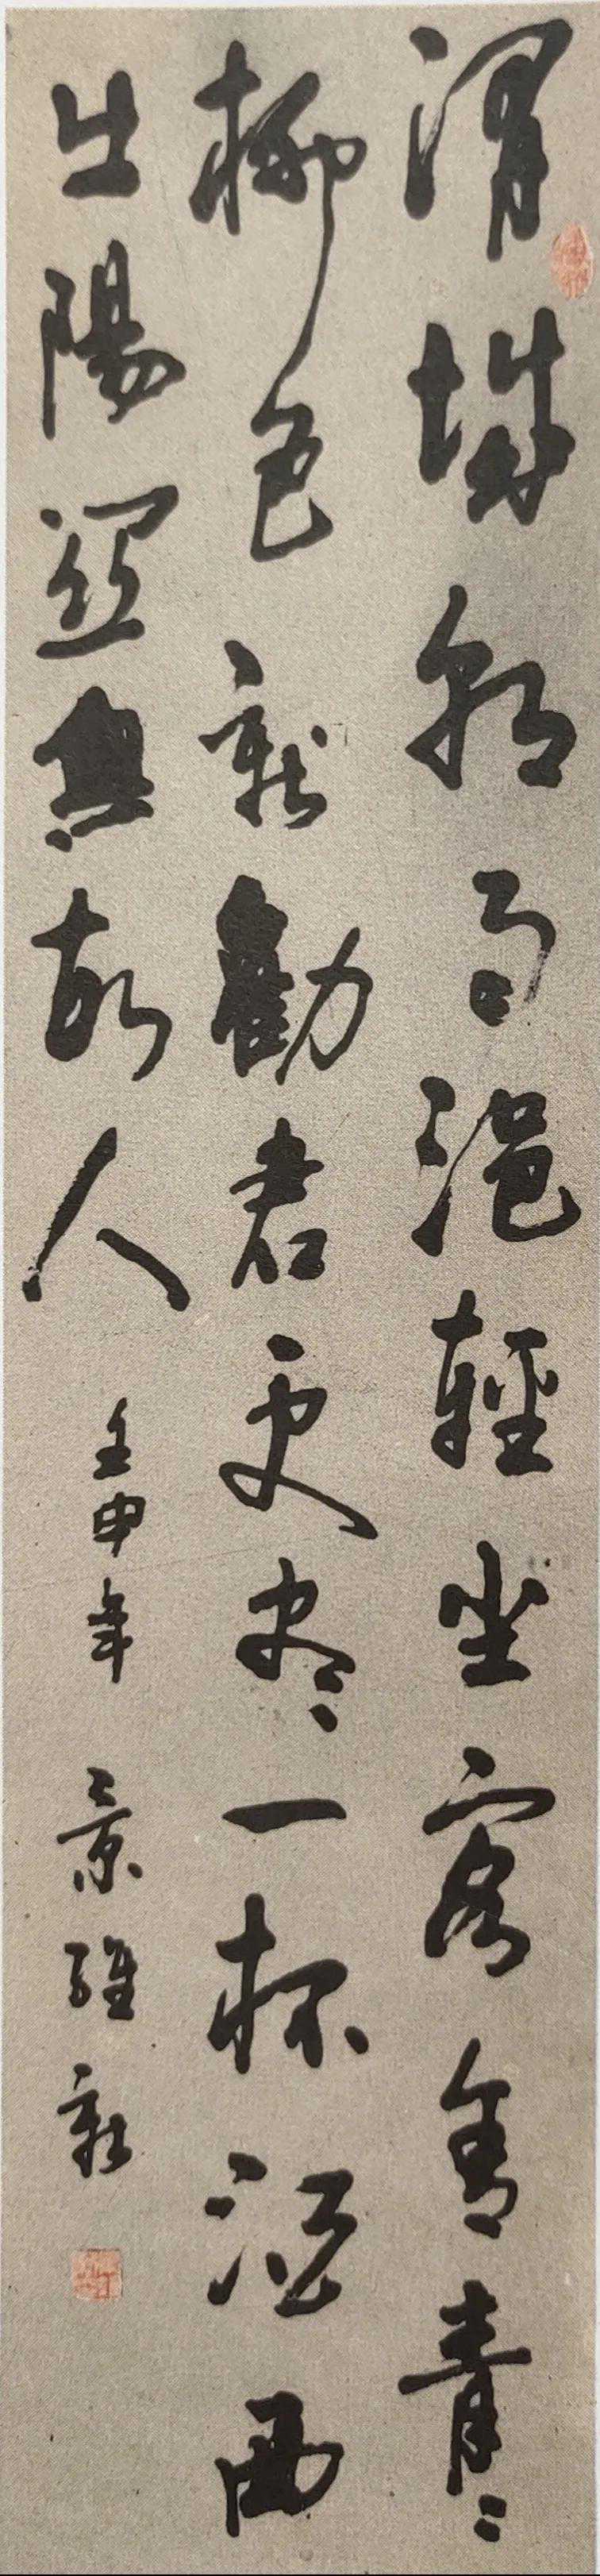 渭城朝雨浥輕尘客舍青々
柳色新勸君更尽一杯酒西
出陽關無故人 壬申年 景維新